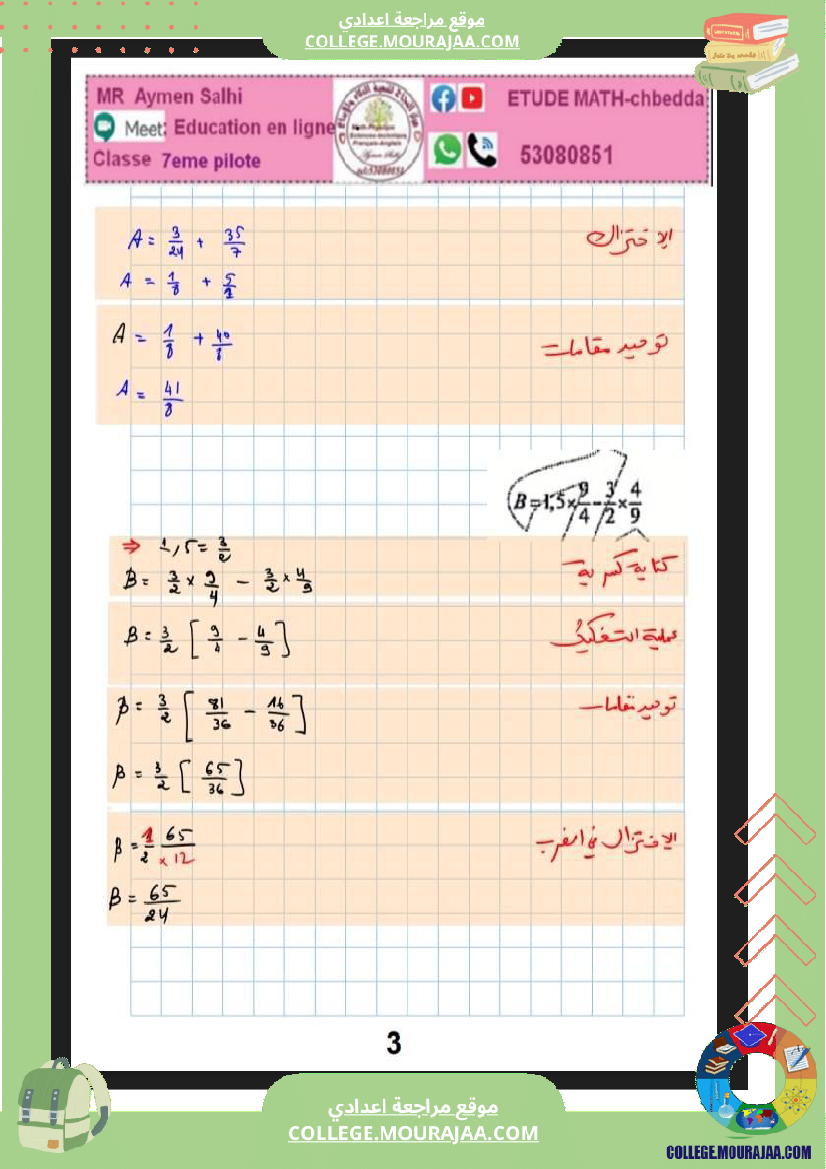 موقع مراجعة اعدادي
COLLEGE.MOURAJAA.COM
MR Aymen Salhi
Meet: Education en ligne
Classe 7eme pilote
ETUDE MATH-chbedda
53080851
A = 3/24 + 35/7
الإختزال
A = 1/8 + 5/1
A = 1/8 + 40/8
توحيد مقامات
A = 41/8
B = 1,5 × 9/4 - 3/2 × 4/9
⇒ 1,5 = 3/2
كتابة كسرية
B = 3/2 × 9/4 - 3/2 × 4/9
B = 3/2 [ 9/4 - 4/9 ]
عملية التفكيك
B = 3/2 [ 81/36 - 16/36 ]
توحيد مقامات
B = 3/2 [ 65/36 ]
B = 1/2 65/× 12
الإختزال في الضرب
B = 65/24
3
موقع مراجعة اعدادي
COLLEGE.MOURAJAA.COM
COLLEGE.MOURAJAA.COM